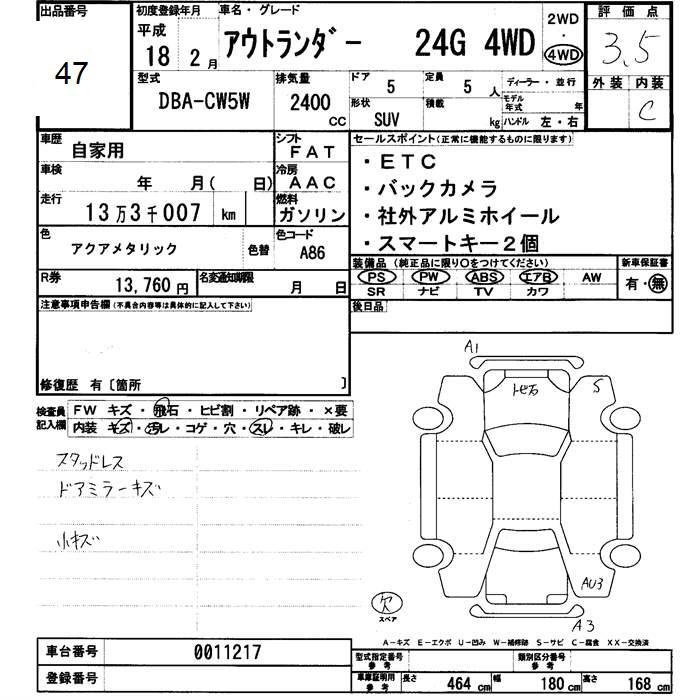 出品番号
47
初度登録年月
平成
18 2 月
車名・グレード
アウトランダー 24G 4WD
2WD
・
4WD
評価点
3.5
外装 内装
C
型式
DBA-CW5W
排気量
2400 cc
ドア 5
定員 5 人
形状 SUV
積載 kg
ディーラー・並行
モデル年式 年
ハンドル 左・右
車歴
自家用
シフト
FAT
車検
年 月( 日)
冷房
AAC
走行
13万3千007 km
燃料
ガソリン
色
アクアメタリック
色替
色コード
A86
R券
13,760 円
名変通知期限
月 日
セールスポイント(正常に機能するものに限ります)
・ETC
・バックカメラ
・社外アルミホイール
・スマートキー2個
装備品 (純正品に限り○をつけてください)
PS PW ABS エアB AW
SR ナビ TV カワ
新車保証書
有・無
後日品
注意事項申告欄(不具合内容等は具体的に記入して下さい)
修復歴 有〔箇所 〕
検査員記入欄
FW キズ・飛石・ヒビ割・リペア跡・×要
内装 キズ・汚レ・コゲ・穴・スレ・キレ・破レ
スタッドレス
ドアミラーキズ
小キズ
A1
トビ石
S
AU3
A3
欠
スペア
A-キズ E-エクボ U-凹み W-補修跡 S-サビ C-腐食 XX-交換済
車台番号 0011217
登録番号
型式指定番号
参考
類別区分番号
参考
車庫証明用
参考
長さ 464 cm 幅 180 cm 高さ 168 cm